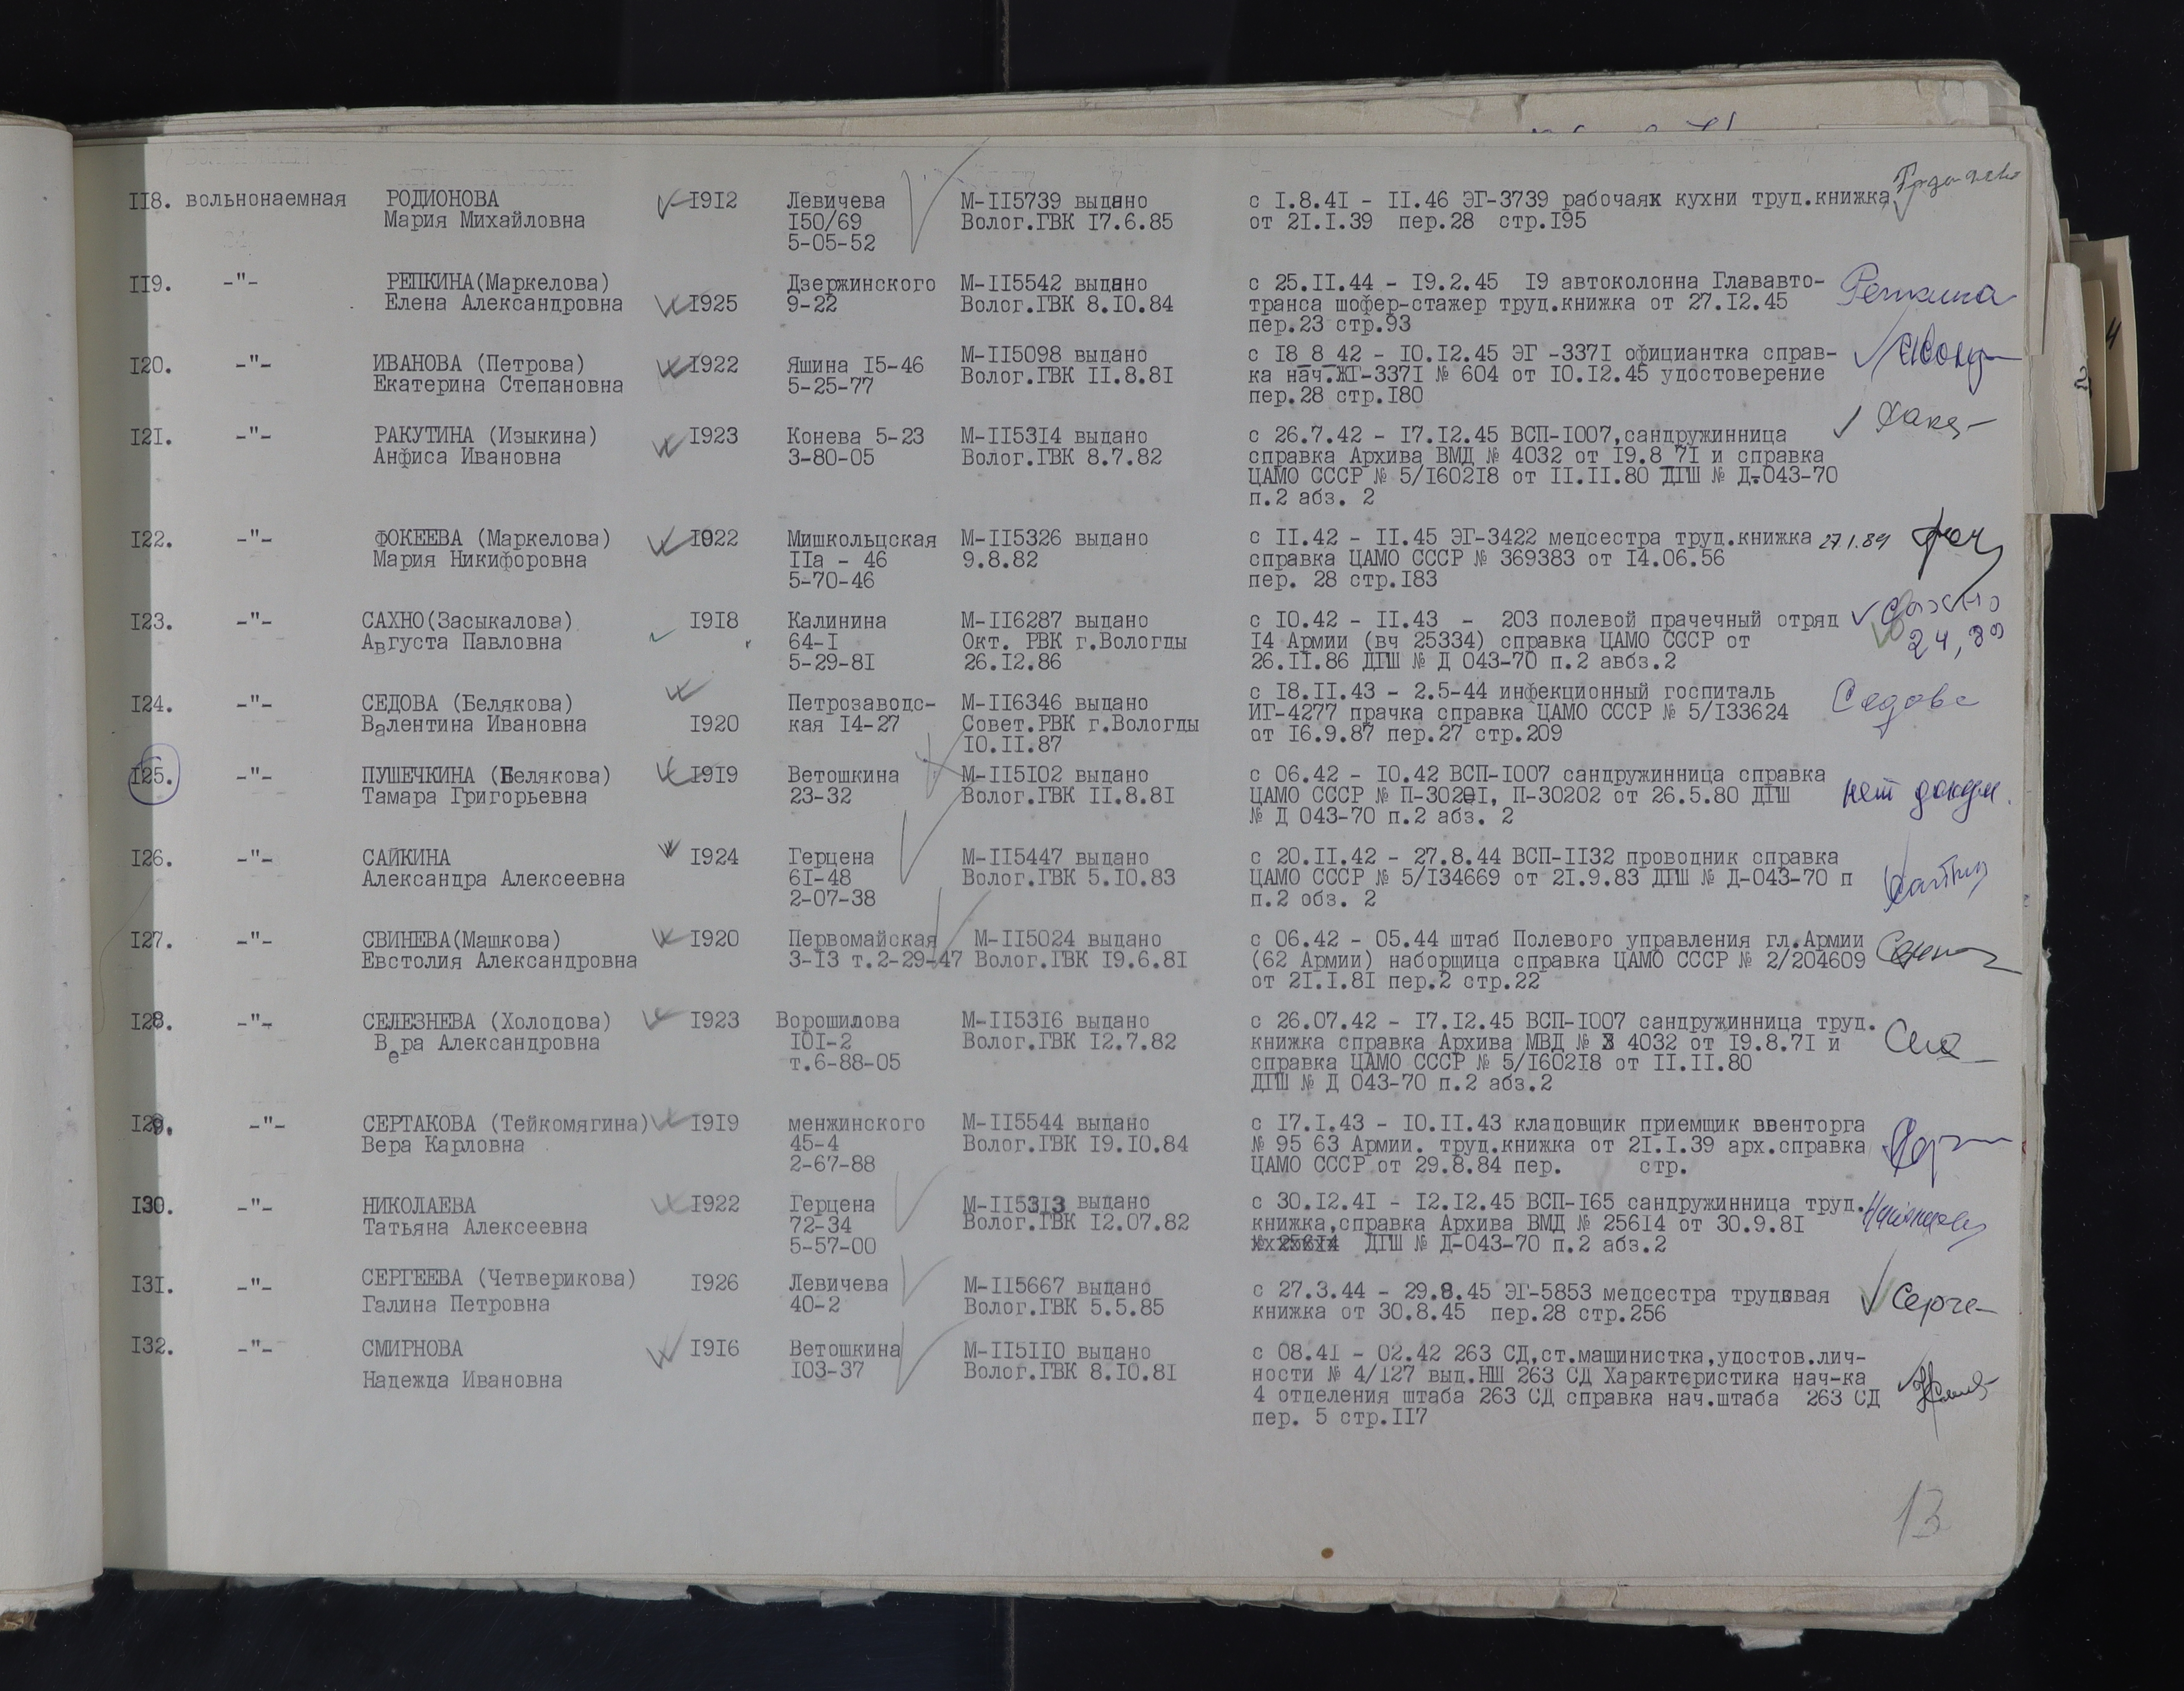 II8. вольнонаемная РОДИОНОВА I9I2 Левичева М-II5739 выдано с I.8.4I - II.46 ЭГ-3739 рабочаях кухни труд.книжка
Мария Михайловна I50/69 Волог.ГВК I7.6.85 от 2I.I.39 пер.28 стр.I95
5-05-52
II9. -"- РЕПКИНА(Маркелова) Дзержинского М-II5542 выдано с 25.II.44 - I9.2.45 I9 автоколонна Глававто- Репкина
Елена Александровна I925 9-22 Волог.ГВК 8.I0.84 транса шофер-стажер труд.книжка от 27.I2.45
пер.23 стр.93
I20. -"- ИВАНОВА (Петрова) I922 Яшина I5-46 М-II5098 выдано с I8_8_42 - I0.I2.45 ЭГ -337I официантка справ-
Екатерина Степановна 5-25-77 Волог.ГВК II.8.8I ка нач.ЖГ-337I № 604 от I0.I2.45 удостоверение
пер.28 стр.I80
I2I. -"- РАКУТИНА (Изыкина) I923 Конева 5-23 М-II53I4 выдано с 26.7.42 - I7.I2.45 ВСП-I007,сандружинница
Анфиса Ивановна 3-80-05 Волог.ГВК 8.7.82 справка Архива ВМД № 4032 от I9.8 7I и справка
ЦАМО СССР № 5/I602I8 от II.II.80 ДГШ № Д-043-70
п.2 абз. 2
I22. -"- ФОКЕЕВА (Маркелова) I922 Мишкольцская М-II5326 выдано с II.42 - II.45 ЭГ-3422 медсестра труд.книжка 27.1.89
Мария Никифоровна IIа - 46 9.8.82 справка ЦАМО СССР № 369383 от I4.06.56
5-70-46 пер. 28 стр.I83
I23. -"- САХНО(Засыкалова) I9I8 Калинина М-II6287 выдано с I0.42 - II.43 - 203 полевой прачечный отряд Сахно
Августа Павловна 64-I Окт. РВК г.Вологды I4 Армии (вч 25334) справка ЦАМО СССР от
5-29-8I 26.I2.86 26.II.86 ДГШ № Д 043-70 п.2 авбз.2
I24. -"- СЕДОВА (Белякова) Петрозаводс- М-II6346 выдано с I8.II.43 - 2.5-44 инфекционный госпиталь Седова
Валентина Ивановна I920 кая I4-27 Совет.РВК г.Вологды ИГ-4277 прачка справка ЦАМО СССР № 5/I33624
I0.II.87 от I6.9.87 пер.27 стр.209
I25. -"- ПУШЕЧКИНА (Белякова) I9I9 Ветошкина М-II5I02 выдано с 06.42 - I0.42 ВСП-I007 сандружинница справка нет докум.
Тамара Григорьевна 23-32 Волог.ГВК II.8.8I ЦАМО СССР № П-3020I, П-30202 от 26.5.80 ДГШ
№ Д 043-70 п.2 абз. 2
I26. -"- САЙКИНА I924 Герцена М-II5447 выдано с 20.II.42 - 27.8.44 ВСП-II32 проводник справка
Александра Алексеевна 6I-48 Волог.ГВК 5.I0.83 ЦАМО СССР № 5/I34669 от 2I.9.83 ДГШ № Д-043-70 п
2-07-38 п.2 обз. 2
I27. -"- СВИНЕВА(Машкова) I920 Первомайская М-II5024 выдано с 06.42 - 05.44 штаб Полевого управления гл.Армии
Евстолия Александровна 3-I3 т.2-29-47 Волог.ГВК I9.6.8I (62 Армии) наборщица справка ЦАМО СССР № 2/204609
от 2I.I.8I пер.2 стр.22
I28. -"- СЕЛЕЗНЕВА (Холодова) I923 Ворошилова М-II53I6 выдано с 26.07.42 - I7.I2.45 ВСП-I007 сандружинница труд.
Вера Александровна I0I-2 Волог.ГВК I2.7.82 книжка справка Архива МВД № 4032 от I9.8.7I и
т.6-88-05 справка ЦАМО СССР № 5/I602I8 от II.II.80
ДГШ № Д 043-70 п.2 абз.2
I29. -"- СЕРТАКОВА (Тейкомягина) I9I9 менжинского М-II5544 выдано с I7.I.43 - I0.II.43 кладовщик приемщик ввенторга
Вера Карловна 45-4 Волог.ГВК I9.I0.84 № 95 63 Армии. труд.книжка от 2I.I.39 арх.справка
2-67-88 ЦАМО СССР от 29.8.84 пер. стр.
I30. -"- НИКОЛАЕВА I922 Герцена М-II53I3 выдано с 30.I2.4I - I2.I2.45 ВСП-I65 сандружинница труд.
Татьяна Алексеевна 72-34 Волог.ГВК I2.07.82 книжка,справка Архива ВМД № 256I4 от 30.9.8I
5-57-00 ДГШ № Д-043-70 п.2 абз.2
I3I. -"- СЕРГЕЕВА (Четверикова) I926 Левичева М-II5667 выдано с 27.3.44 - 29.8.45 ЭГ-5853 медсестра трудовая Серге
Галина Петровна 40-2 Волог.ГВК 5.5.85 книжка от 30.8.45 пер.28 стр.256
I32. -"- СМИРНОВА I9I6 Ветошкина М-II5II0 выдано с 08.4I - 02.42 263 СД,ст.машинистка,удостов.лич-
Надежда Ивановна I03-37 Волог.ГВК 8.I0.8I ности № 4/I27 выд.НШ 263 СД Характеристика нач-ка
4 отделения штаба 263 СД справка нач.штаба 263 СД
пер. 5 стр.II7
13